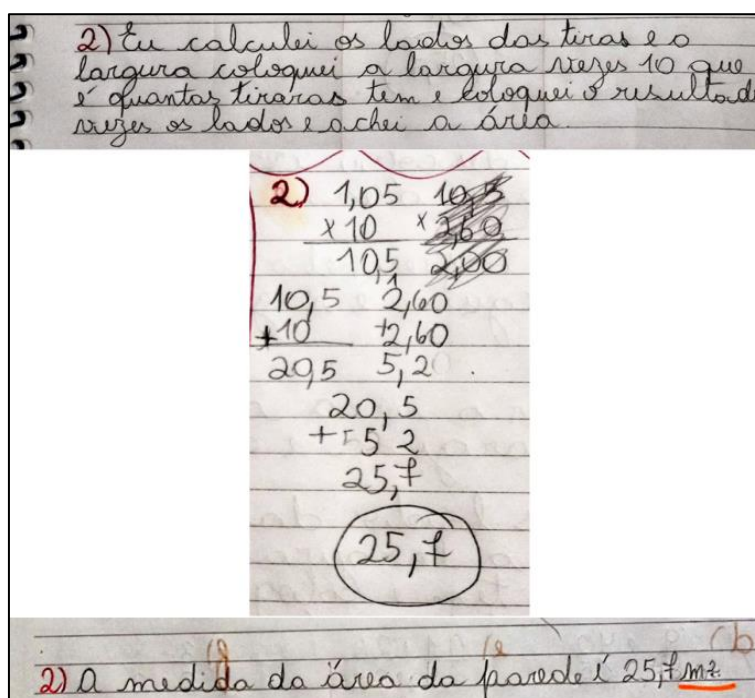 2) Eu calculei os lados das tiras e o
largura coloquei a largura vezes 10 que
é quantas tiraras tem e coloquei o resultad
vezes os lados e achei a área.
2) 1,05 10,5
x 10 x 2,60
10,5 2,00
1
10,5 2,60
+10 +2,60
20,5 5,2
20,5
+ 5 2
25,7
25,7
2) A medida da área da parede é 25,7 m².